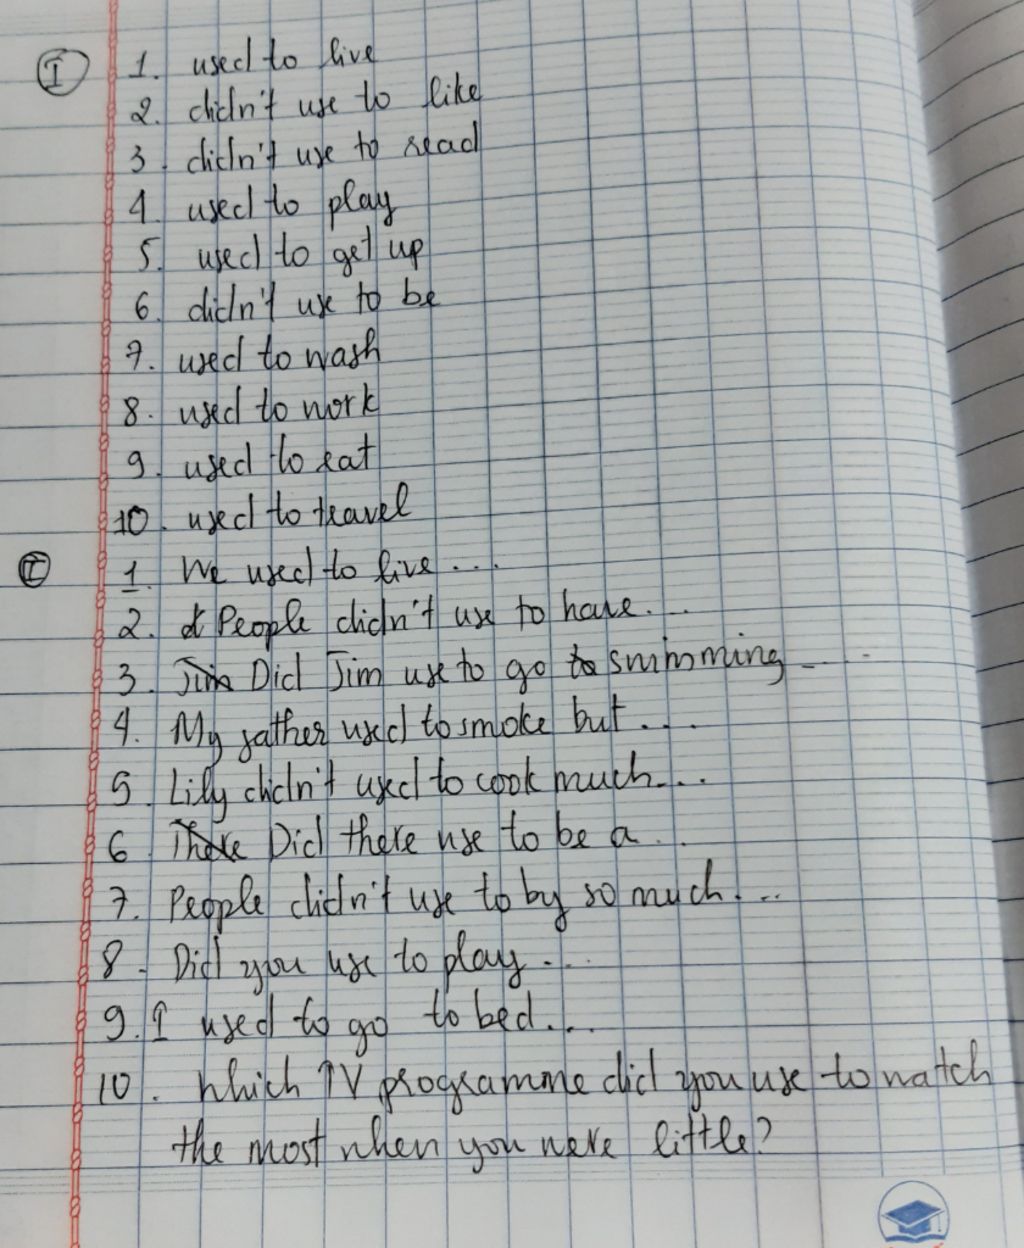 I 1. used to live
2. didn't use to like
3. didn't use to read
4. used to play
5. used to get up
6. didn't use to be
7. used to wash
8. used to work
9. used to eat
10. used to travel
I 1. We used to live ...
2. People didn't use to have...
3. Jim Did Jim use to go to swimming ...
4. My father used to smoke but ...
5. Lily didn't used to cook much...
6. There Did there use to be a ...
7. People didn't use to by so much...
8. Did you use to play ...
9. I used to go to bed...
10. Which TV programme did you use to watch
the most when you were little?